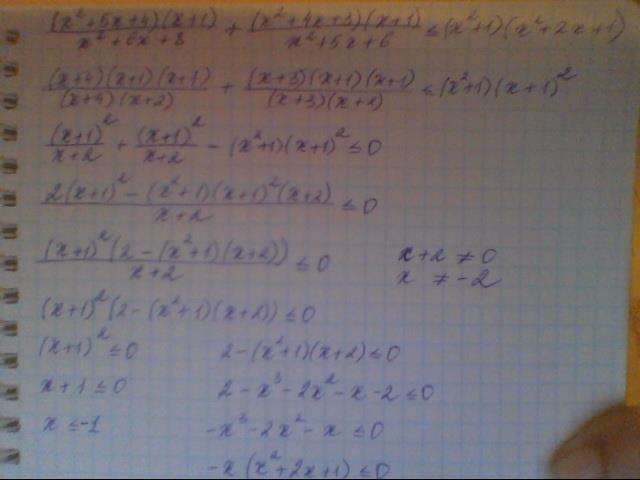 ((x²+5x+4)(x+1))/(x²+6x+8) + ((x²+4x+3)(x+1))/(x²+5x+6) ≤ (x²+1)(x²+2x+1)
((x+4)(x+1)(x+1))/((x+4)(x+2)) + ((x+3)(x+1)(x+1))/((x+3)(x+2)) ≤ (x²+1)(x+1)²
(x+1)²/(x+2) + (x+1)²/(x+2) - (x²+1)(x+1)² ≤ 0
(2(x+1)² - (x²+1)(x+1)²(x+2))/(x+2) ≤ 0
((x+1)²(2-(x²+1)(x+2)))/(x+2) ≤ 0
x+2 ≠ 0
x ≠ -2
(x+1)²(2-(x²+1)(x+2)) ≤ 0
(x+1)² ≤ 0 2-(x²+1)(x+2) ≤ 0
x+1 ≤ 0 2-x³-2x²-x-2 ≤ 0
x ≤ -1 -x³-2x²-x ≤ 0
-x(x²+2x+1) ≤ 0